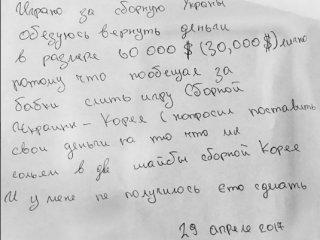 Играю за сборную Украины
обезуюсь вернуть деньги
в размере 60 000 $ (30,000 $) лично
потому что пообещал за
бабки слить игру Сборной
Украины - Корея ( попросил поставить
свои деньги на то что мы
сольем в две шайбы сборной Кореи
И у меня не получилось ето сделать
29 апреля 2017